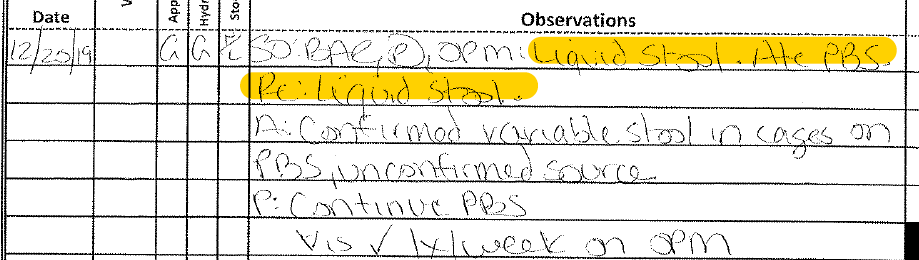 Date V App Hydr Stoo Observations
12/20/19 G G SO: BAR, P, OPM: Liquid Stool. Ate PBS.
PE: Liquid stool.
A: Confirmed variable stool in cages on
PBS, unconfirmed source
P: Continue PBS
Vis ✓ 1x/week on OPM